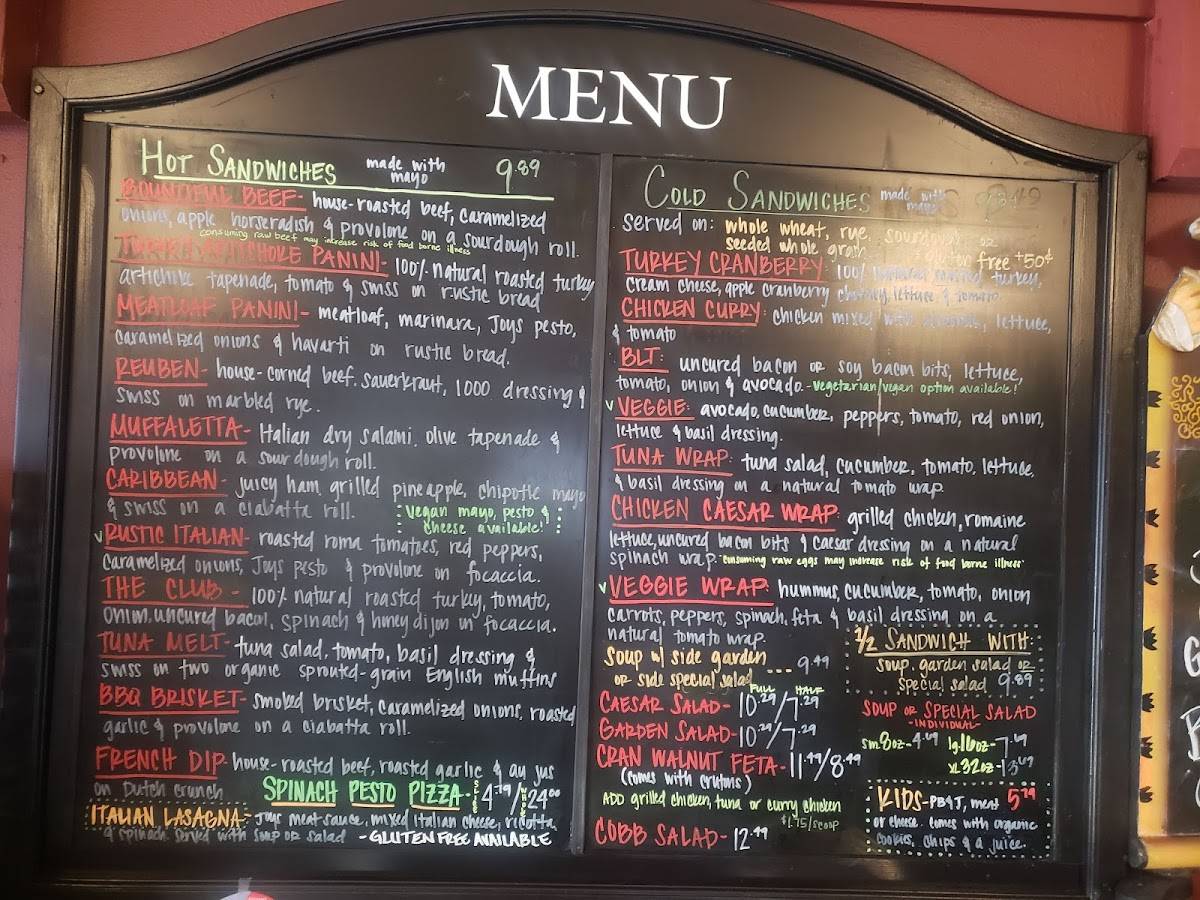 MENU
HOT SANDWICHES made with mayo 9.89
BOUNTIFUL BEEF- house-roasted beef, caramelized
onions, apple horseradish & provolone on a sourdough roll.
consuming raw beef may increase risk of food borne illness
TURKEY ARTICHOKE PANINI- 100% natural roasted turkey
artichoke tapenade, tomato & swiss on rustic bread
MEATLOAF PANINI- meatloaf, marinara, Joys pesto,
caramelized onions & havarti on rustic bread.
REUBEN- house-corned beef. sauerkraut, 1000 dressing &
swiss on marbled rye.
MUFFALETTA- Italian dry salami, olive tapenade &
provolone on a sourdough roll.
CARIBBEAN- juicy ham, grilled pineapple, chipotle mayo
& swiss on a ciabatta roll.
vegan mayo, pesto &
cheese available!
v RUSTIC ITALIAN- roasted roma tomatoes, red peppers,
caramelized onions, Joys pesto & provolone on focaccia.
THE CLUB- 100% natural roasted turkey, tomato,
onion, uncured bacon, spinach & honey dijon on focaccia.
TUNA MELT- tuna salad, tomato, basil dressing &
swiss on two organic sprouted-grain English muffins
BBQ BRISKET- smoked brisket, caramelized onions, roasted
garlic & provolone on a ciabatta roll.
FRENCH DIP- house-roasted beef, roasted garlic & au jus
on Dutch crunch
SPINACH PESTO PIZZA- 4.79/24.00
ITALIAN LASAGNA- Joys meat sauce, mixed italian cheese, ricotta
& spinach. served with soup or salad - GLUTEN FREE AVAILABLE
COLD SANDWICHES made with mayo
served on: whole wheat, rye, sourdough or
seeded whole grain gluten free +50¢
TURKEY CRANBERRY: 100% natural roasted turkey,
cream cheese, apple cranberry chutney, lettuce, & tomato.
CHICKEN CURRY: chicken mixed with almonds, lettuce,
& tomato
BLT: uncured bacon or soy bacon bits, lettuce,
tomato, onion & avocado.-vegetarian/vegan option available!
v VEGGIE: avocado, cucumber, peppers, tomato, red onion,
lettuce & basil dressing.
TUNA WRAP: tuna salad, cucumber, tomato, lettuce,
& basil dressing on a natural tomato wrap.
CHICKEN CAESAR WRAP: grilled chicken, romaine
lettuce, uncured bacon bits & caesar dressing on a natural
spinach wrap. *consuming raw eggs may increase risk of food borne illness*
v VEGGIE WRAP: hummus, cucumber, tomato, onion
carrots, peppers, spinach, feta & basil dressing on a
natural tomato wrap.
Soup w/ side garden
or side special salad ---- 9.49
FULL HALF
CAESAR SALAD- 10.29/7.29
GARDEN SALAD- 10.29/7.29
CRAN WALNUT FETA- 11.49/8.49
(comes with crutons)
ADD grilled chicken, tuna or curry chicken
$1.75/scoop
COBB SALAD- 12.49
1/2 SANDWICH WITH
soup, garden salad or
special salad 9.89
SOUP OR SPECIAL SALAD
-INDIVIDUAL-
sm 8oz-4.69 lg 16oz-7.69
xl 32oz-13.69
KIDS- PB&J, meat 5.79
or cheese. comes with organic
cookies, chips & a juice.